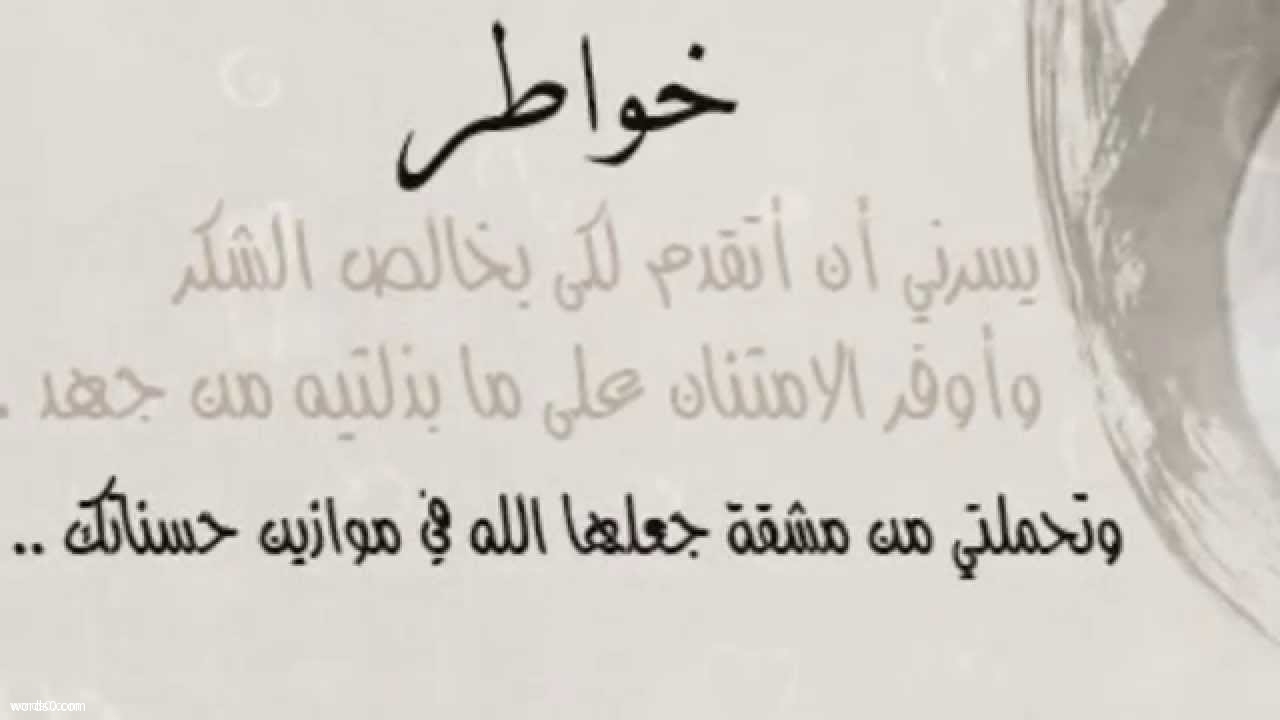 خواطر
يسرني أن أتقدم لكى بخالص الشكر
وأوفر الامتنان على ما بذلتيه من جهد .
وتحملتي من مشقة جعلها الله في موازين حسناتك ..
wordls0.com